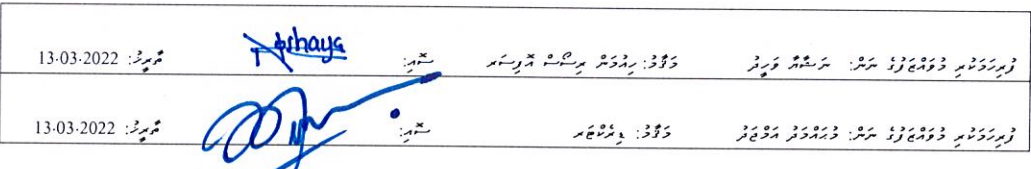 ފުރިހަމަކުރި މުވައްޒަފުގެ ނަން: ނަޝާޔާ ވަހީދު މަޤާމު: ހިއުމަން ރިސޯސް އޮފިސަރ ސޮއި: ތާރީޚު: 13-03-2022
ފުރިހަމަކުރި މުވައްޒަފުގެ ނަން: މުޙައްމަދު އަމްޖަދު މަޤާމު: ޑިރެކްޓަރ ސޮއި: ތާރީޚު: 13-03-2022